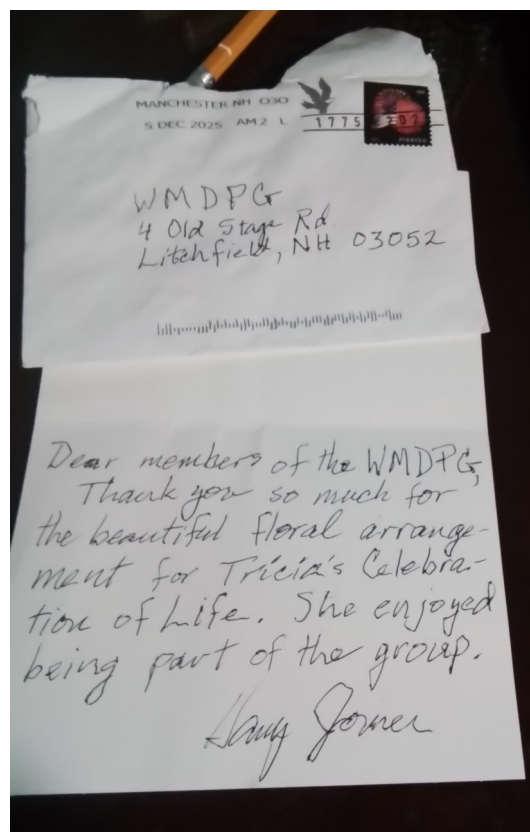 MANCHESTER NH 030
5 DEC 2025 AM 2 L
1775 2026
FOREVER
WMDPG
4 Old Stage Rd
Litchfield, NH 03052
Dear members of the WMDPG,
Thank you so much for
the beautiful floral arrange-
ment for Tricia's Celebra-
tion of Life. She enjoyed
being part of the group.